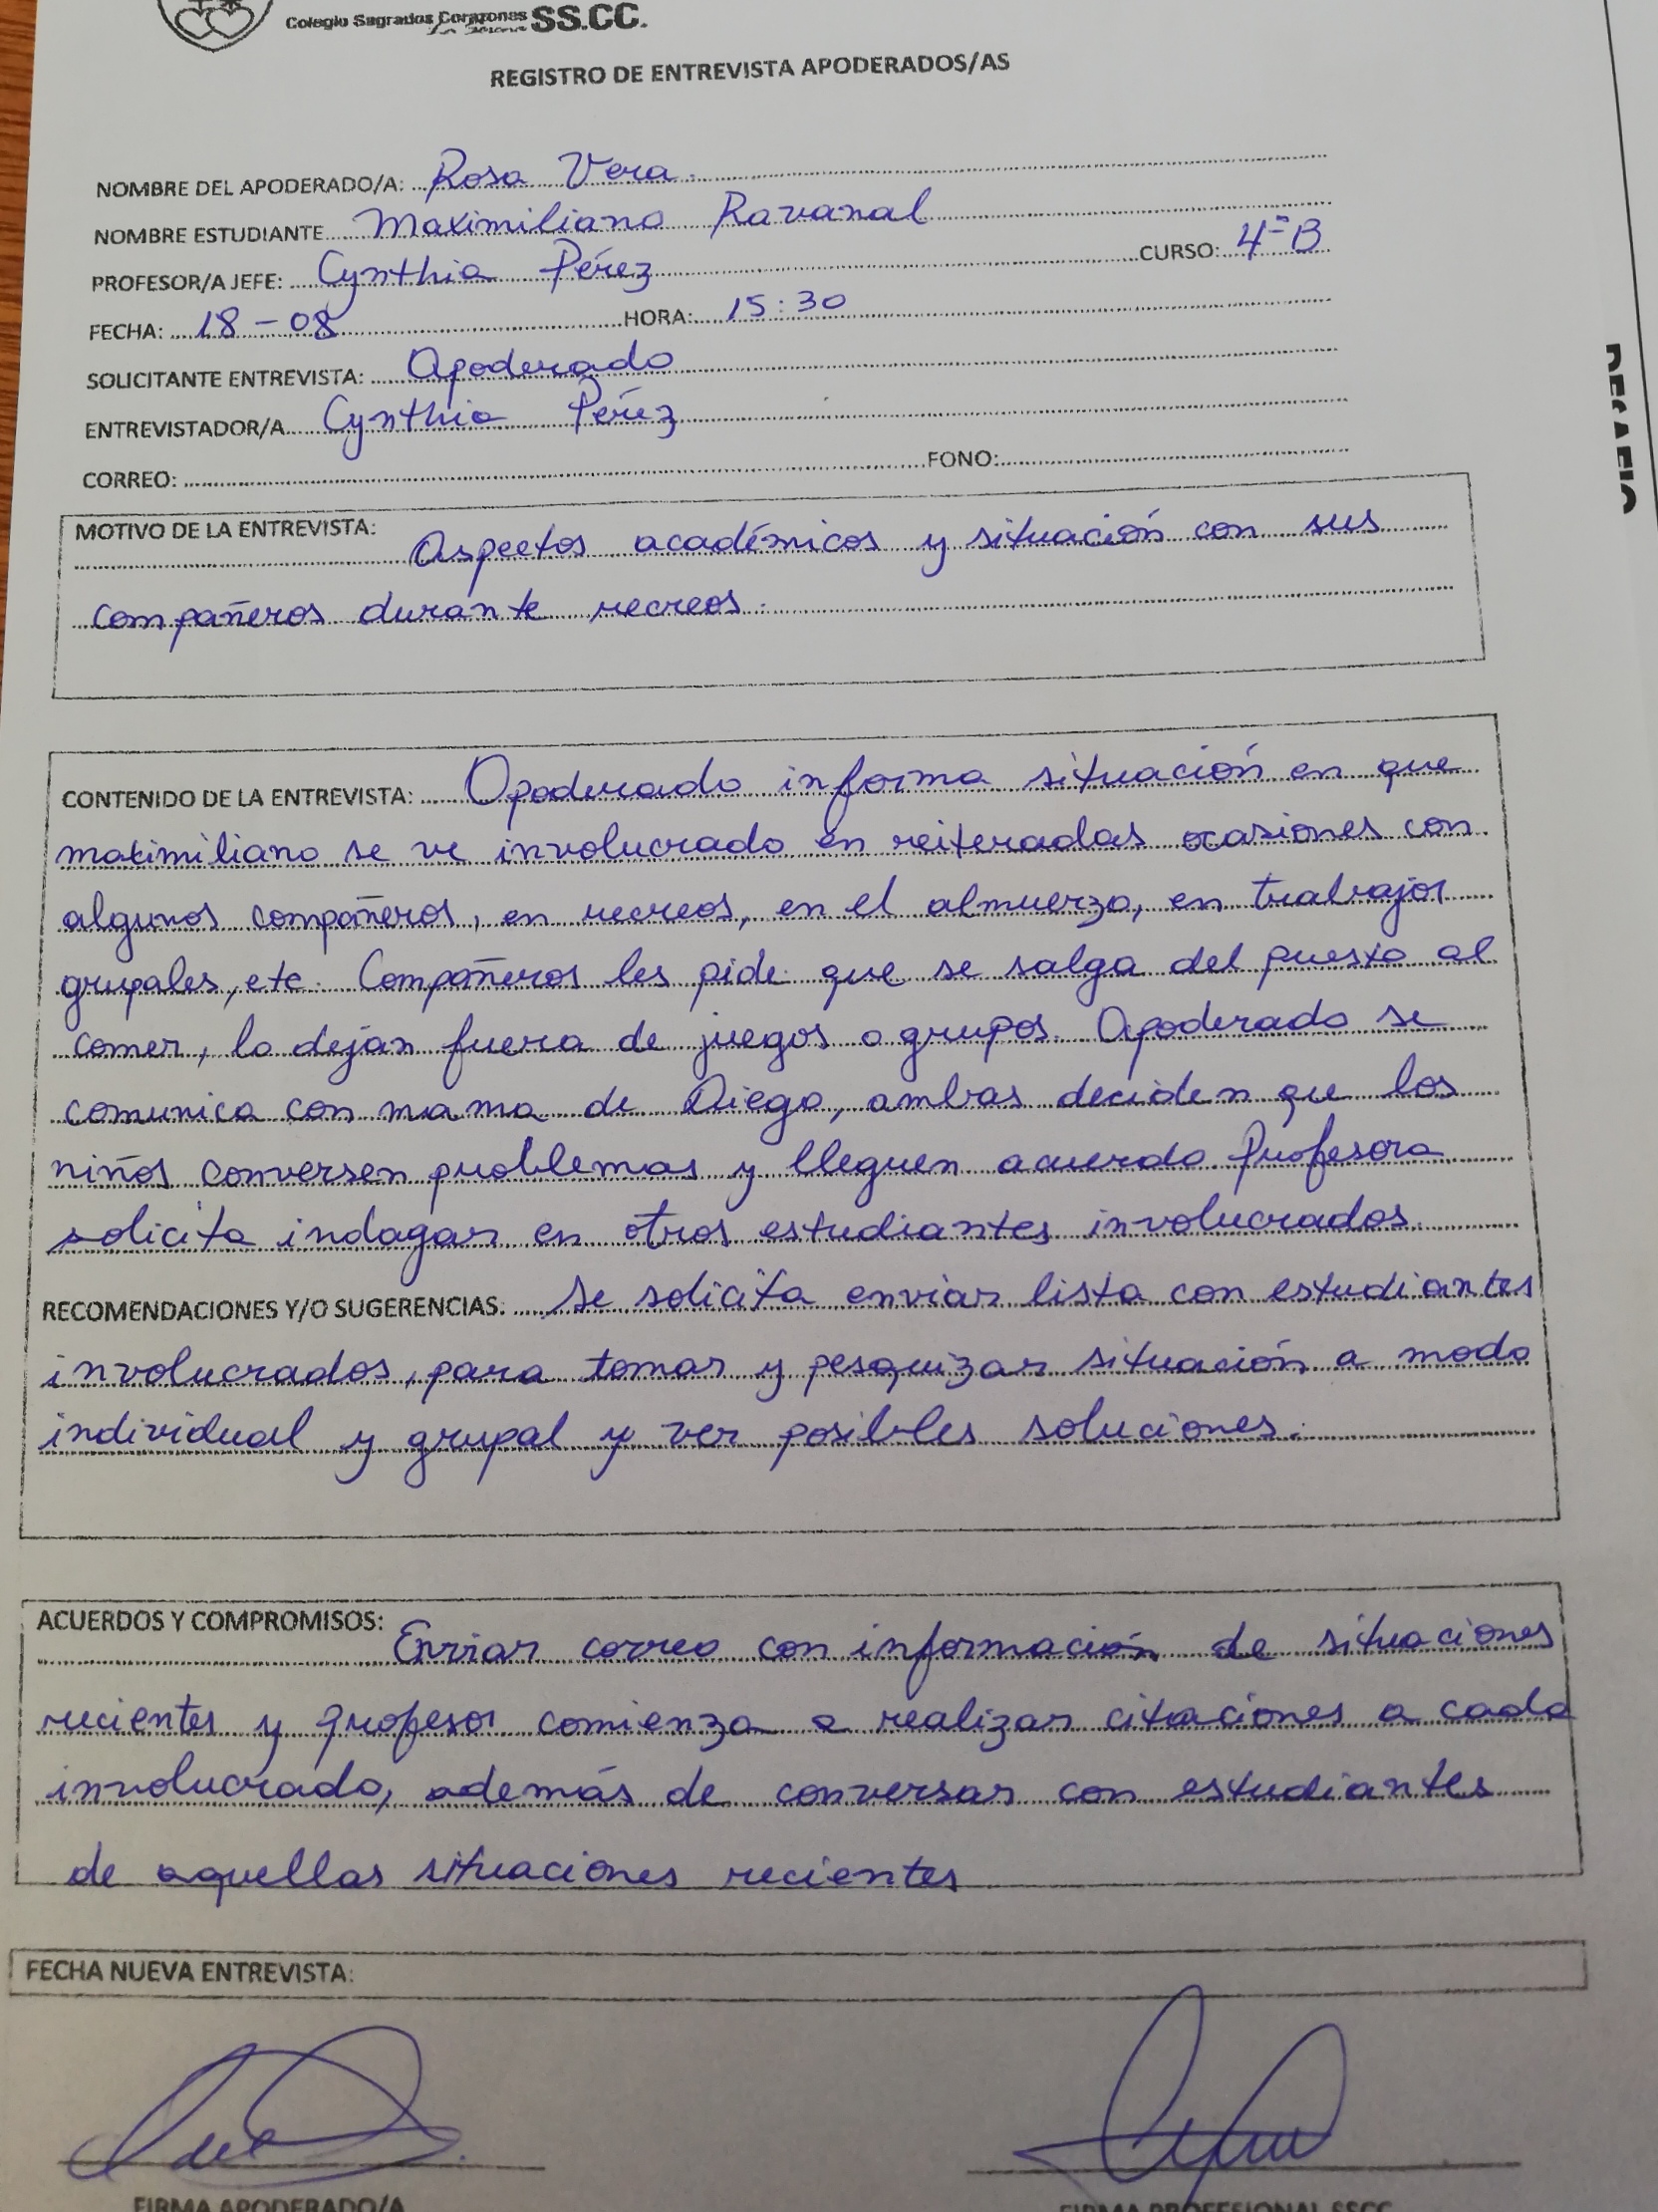 Colegio Sagrados Corazones SS.CC.
REGISTRO DE ENTREVISTA APODERADOS/AS
NOMBRE DEL APODERADO/A: Rosa Vera.
NOMBRE ESTUDIANTE Maximiliano Ravanal
PROFESOR/A JEFE: Cynthia Pérez CURSO: 4º B
FECHA: 18-08 HORA: 15:30
SOLICITANTE ENTREVISTA: Apoderado
ENTREVISTADOR/A Cynthia Pérez
CORREO: FONO:
MOTIVO DE LA ENTREVISTA: Aspectos académicos y situación con sus
compañeros durante recreos.
CONTENIDO DE LA ENTREVISTA: Apoderado informa situación en que
maximiliano se ve involucrado en reiteradas ocasiones con
algunos compañeros, en recreos, en el almuerzo, en trabajos
grupales, etc. Compañeros les pide que se salga del puesto al
comer, lo dejan fuera de juegos o grupos. Apoderado se
comunica con mama de Diego, ambas deciden que los
niños conversen problemas y lleguen acuerdo. Profesora
solicita indagar en otros estudiantes involucrados.
RECOMENDACIONES Y/O SUGERENCIAS: Se solicita enviar lista con estudiantes
involucrados, para tomar y pesquizar situación a modo
individual y grupal y ver posibles soluciones.
ACUERDOS Y COMPROMISOS: Enviar correo con información de situaciones
recientes y profesor comienza a realizar citaciones a cada
involucrado, además de conversar con estudiantes
de aquellas situaciones recientes
FECHA NUEVA ENTREVISTA:
FIRMA APODERADO/A FIRMA PROFESIONAL SSCC